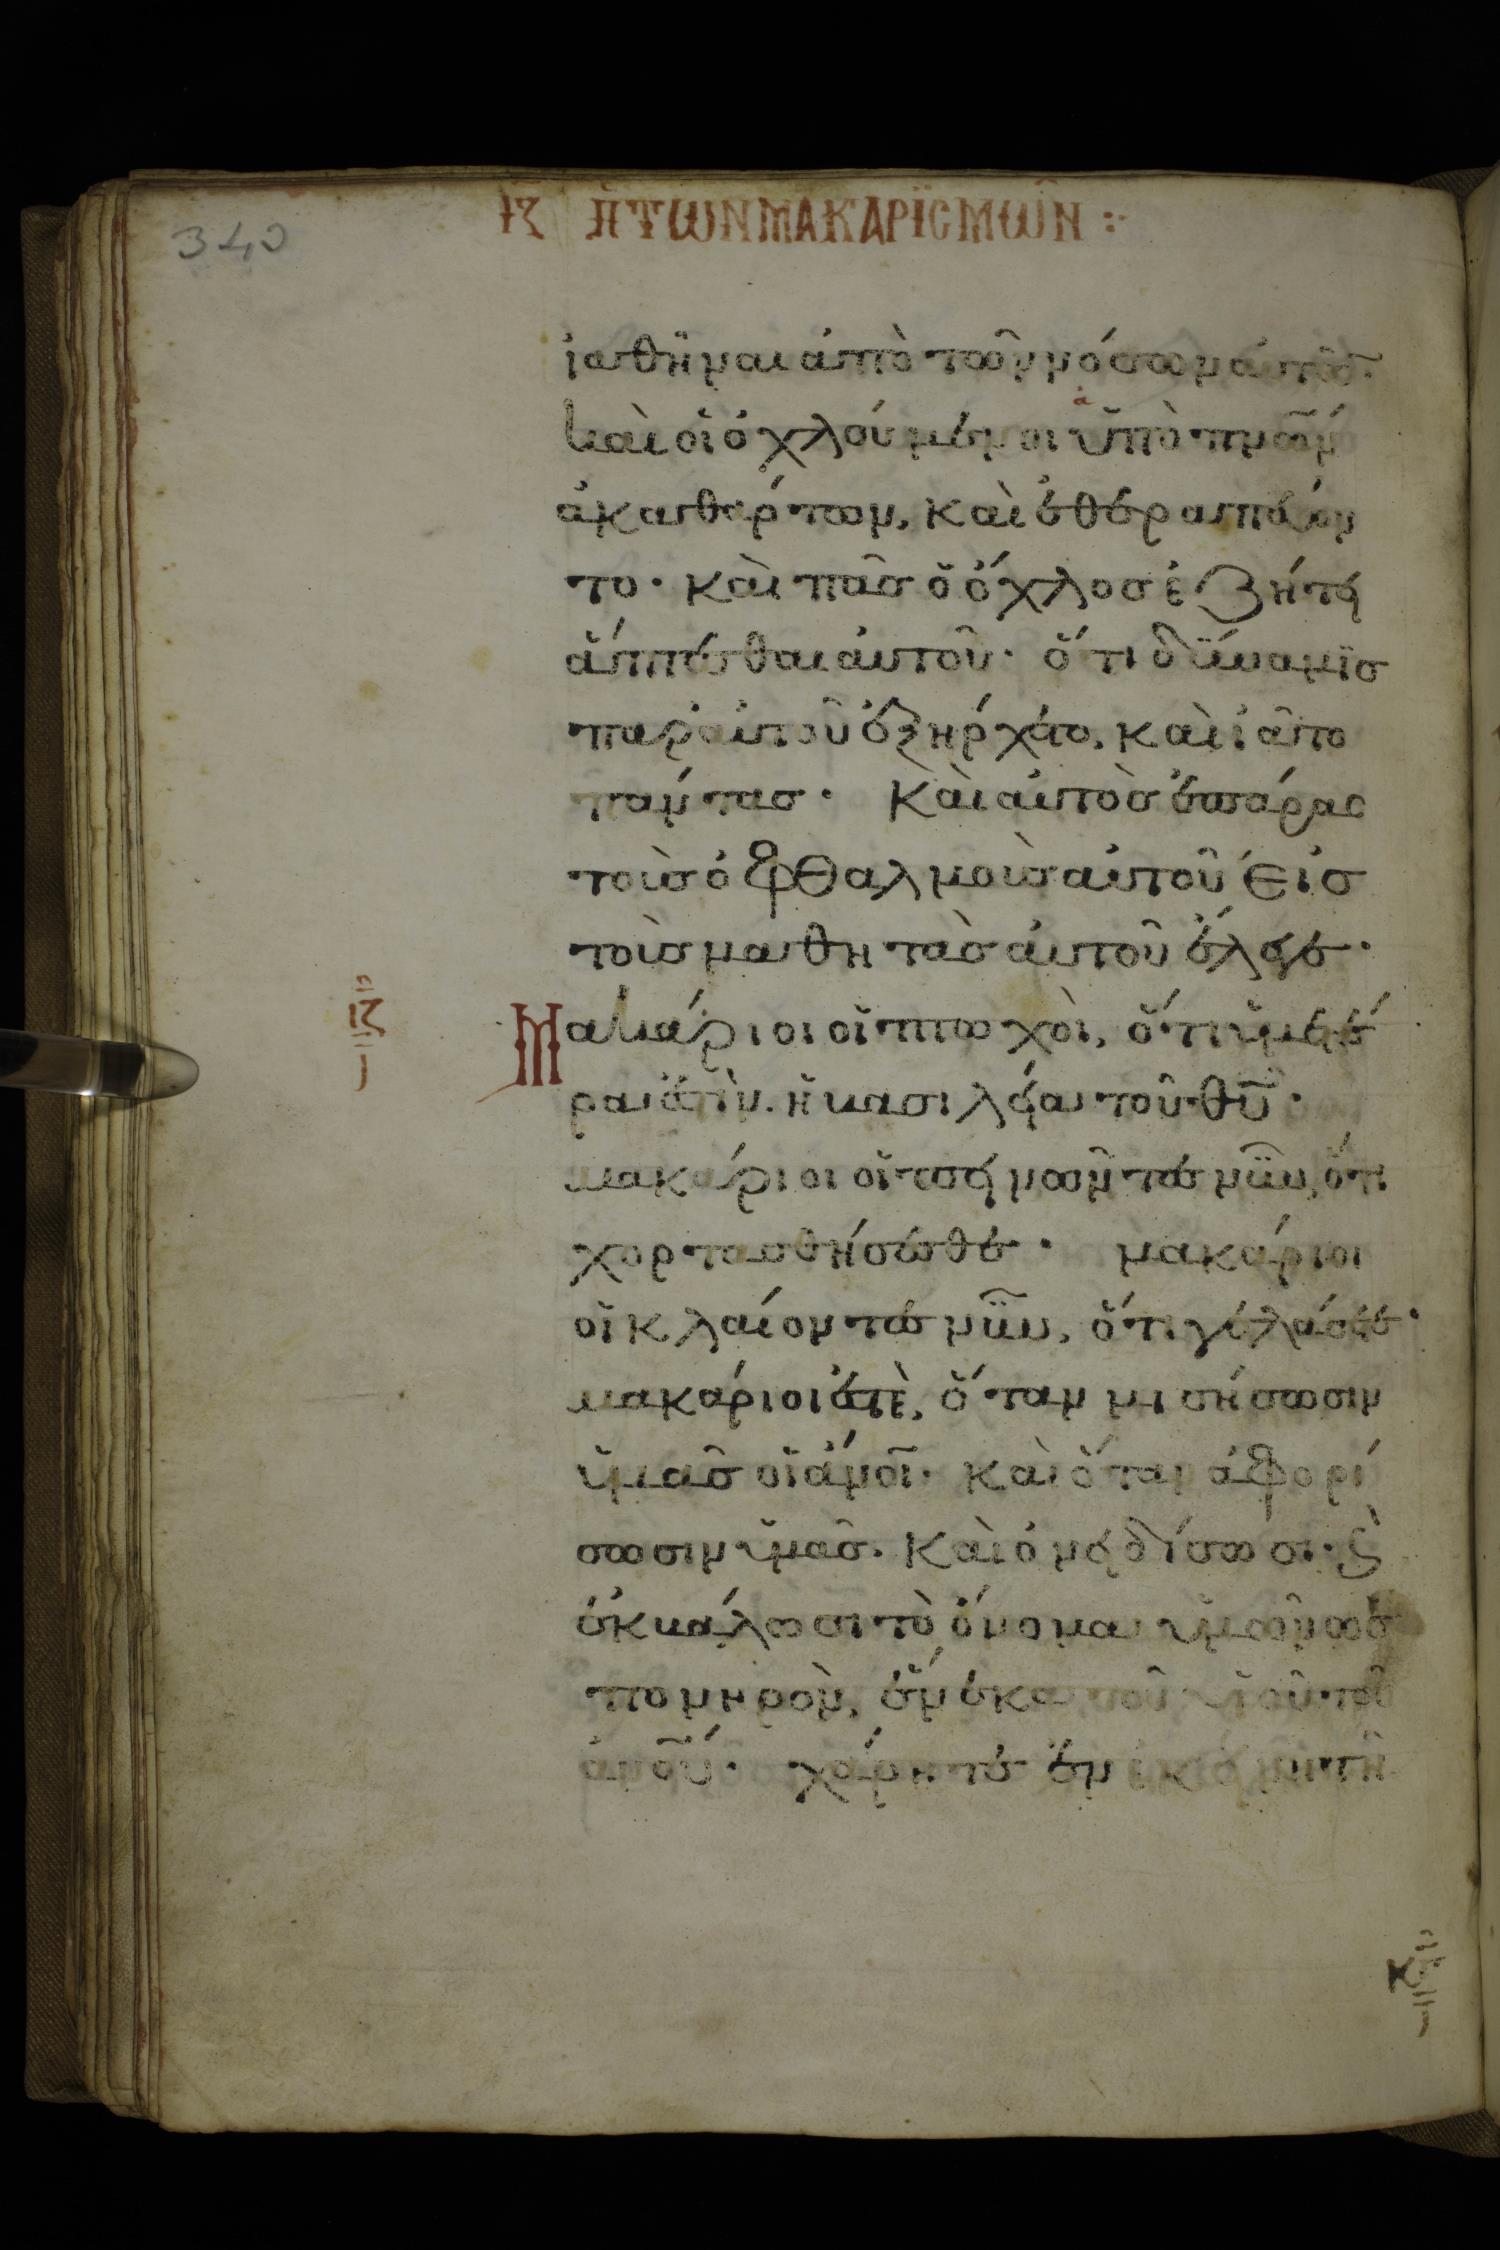 340
ιζ π των μακαρϊσμων :·
ιαθῆναι ἀπὸ τῶν νόσων αὐτῶν·
καὶ οἱ ὀχλούμενοι ὑπὸ πνῶν
ἀκαθάρτων, καὶ ἐθεραπεύον
το· καὶ πᾶσ ὁ ὄχλοσ ἐζήτει
ἅπτεσθαι αὐτοῦ· ὅτι δύναμϊσ
παρ αὐτοῦ ἐξήρχετο, καὶ ἰᾶτο
πάντασ· Καὶ αὐτὸσ ἐπάρας
τοὺσ ὀφθαλμοὺσ αὐτοῦ εἰσ
τοὺσ μαθητὰσ αὐτοῦ ἔλεγε·
Μακάριοι οἱ πτωχοὶ, ὅτι ὑμετέ
ρα ἐστὶν. ἡ βασιλεία τοῦ θῦ·
μακάριοι οἱ πεινῶντεσ νῦν, ὅτι
χορτασθήσεσθε· μακάριοι
οἱ κλαίοντεσ νῦν, ὅτι γελάσετε·
μακάριοι ἐστὲ, ὅταν μισήσωσιν
ὑμᾶσ οἱ ἄνοι· καὶ ὅταν ἀφορί
σωσιν ὑμᾶσ. Καὶ ὀνειδίσωσι· ϗ
ἐκβάλωσι τὸ ὄνομα ὑμῶν ὡσ
πονηρὸν, ἕνεκα τοῦ υἱοῦ τοῦ
ἀνοῦ· χάρητε ἐν ἐκείνῃ τῇ